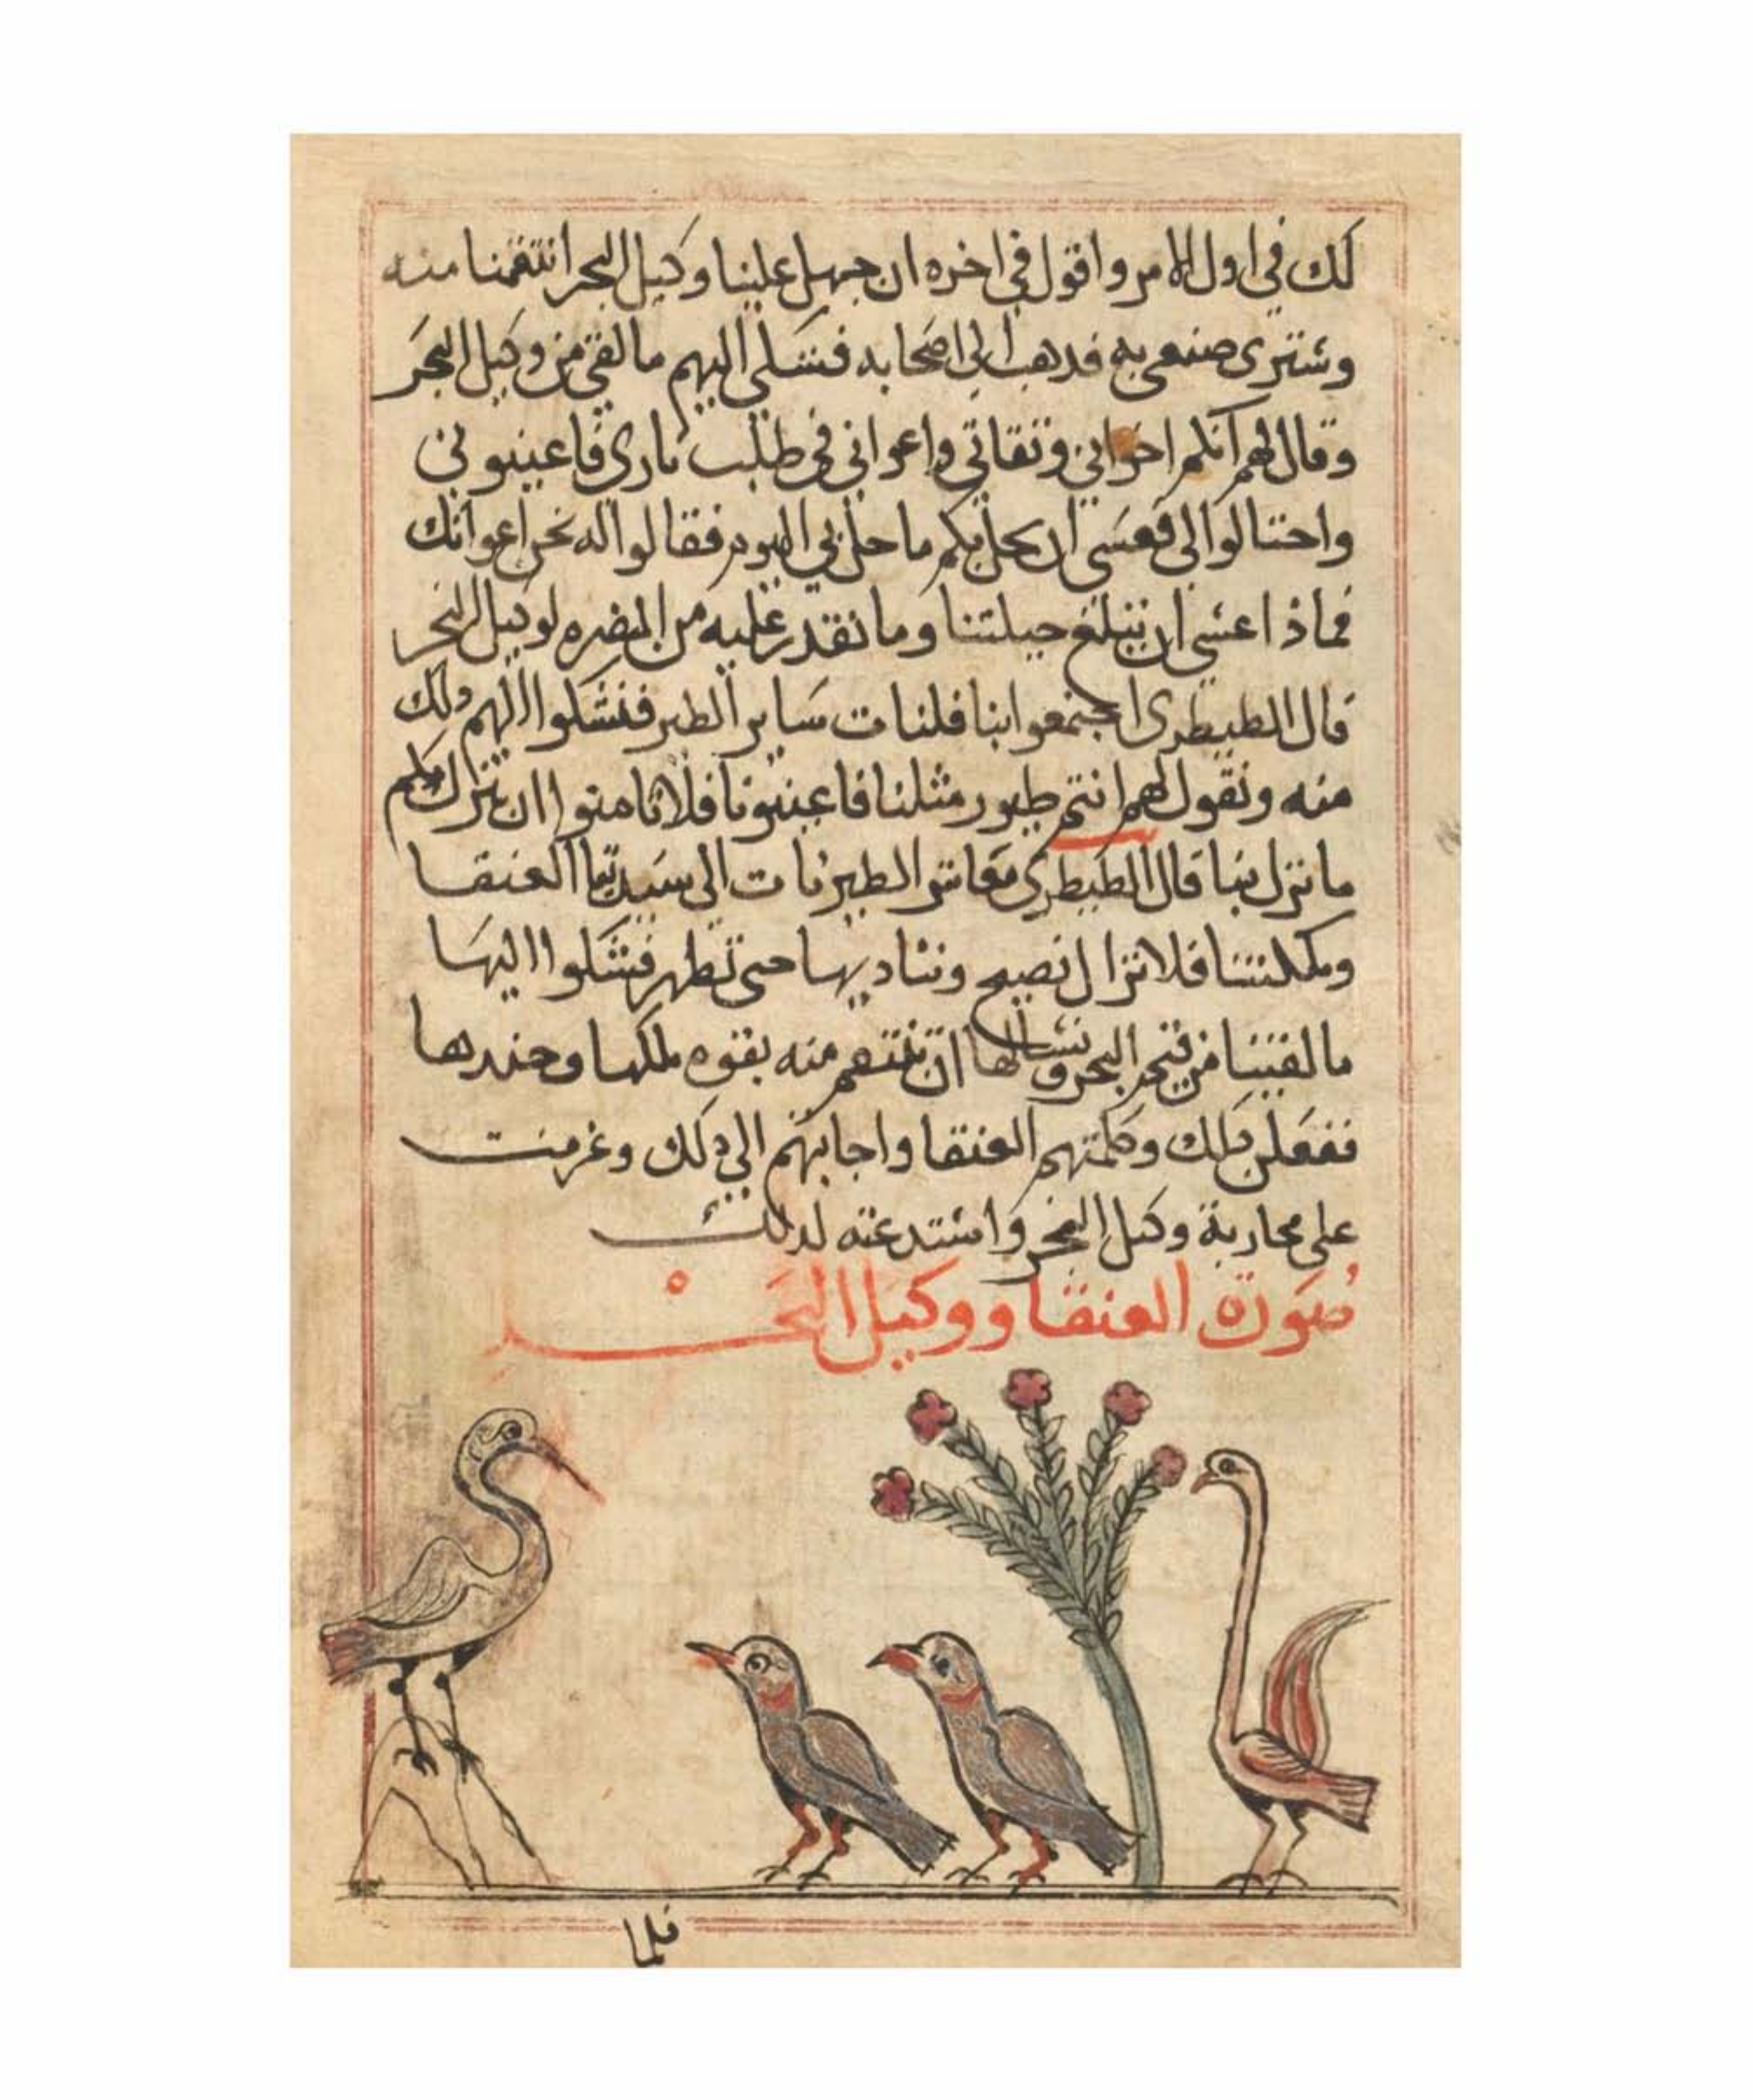 لك في اول الامر واقول في اخره ان جهل علينا وكيل البحر انتقمنا منه
وسترى صنعي به فذهب الى اصحابه فشكى اليهم ما لقي من وكيل البحر
وقال لهم انكم اخواني وثقاتي واعواني في طلب ثاري فاعينوني
واحتالوا لي فعسى ان يحل بكم ما حل بي اليوم فقالوا له نحن اعوانك
فماذا عسى ان تبلغ حيلتنا وما نقدر عليه من المضره لوكيل البحر
قال الطيطوى اجتمعوا بنا فلنات ساير الطير فنشكوا اليهم ذلك
منه ونقول لهم انتم طيور مثلنا فاعينونا فلا تامنوا ان ينزل بكم
ما نزل بنا قال الطيطوى معاشر الطير نات الى سيدتنا العنقا
وملكتنا فلا نزال نصيح ونناديها حتى تظهر فنشكوا اليها
ما لقينا من البحر ونسالها ان تنتقم منه بقوه ملكها وجندها
ففعلن ذلك وكلمتهم العنقا واجابتهم الى ذلك وعزمت
على محاربة وكيل البحر واستدعته لذلك
صورة العنقا ووكيل البحر
فلما